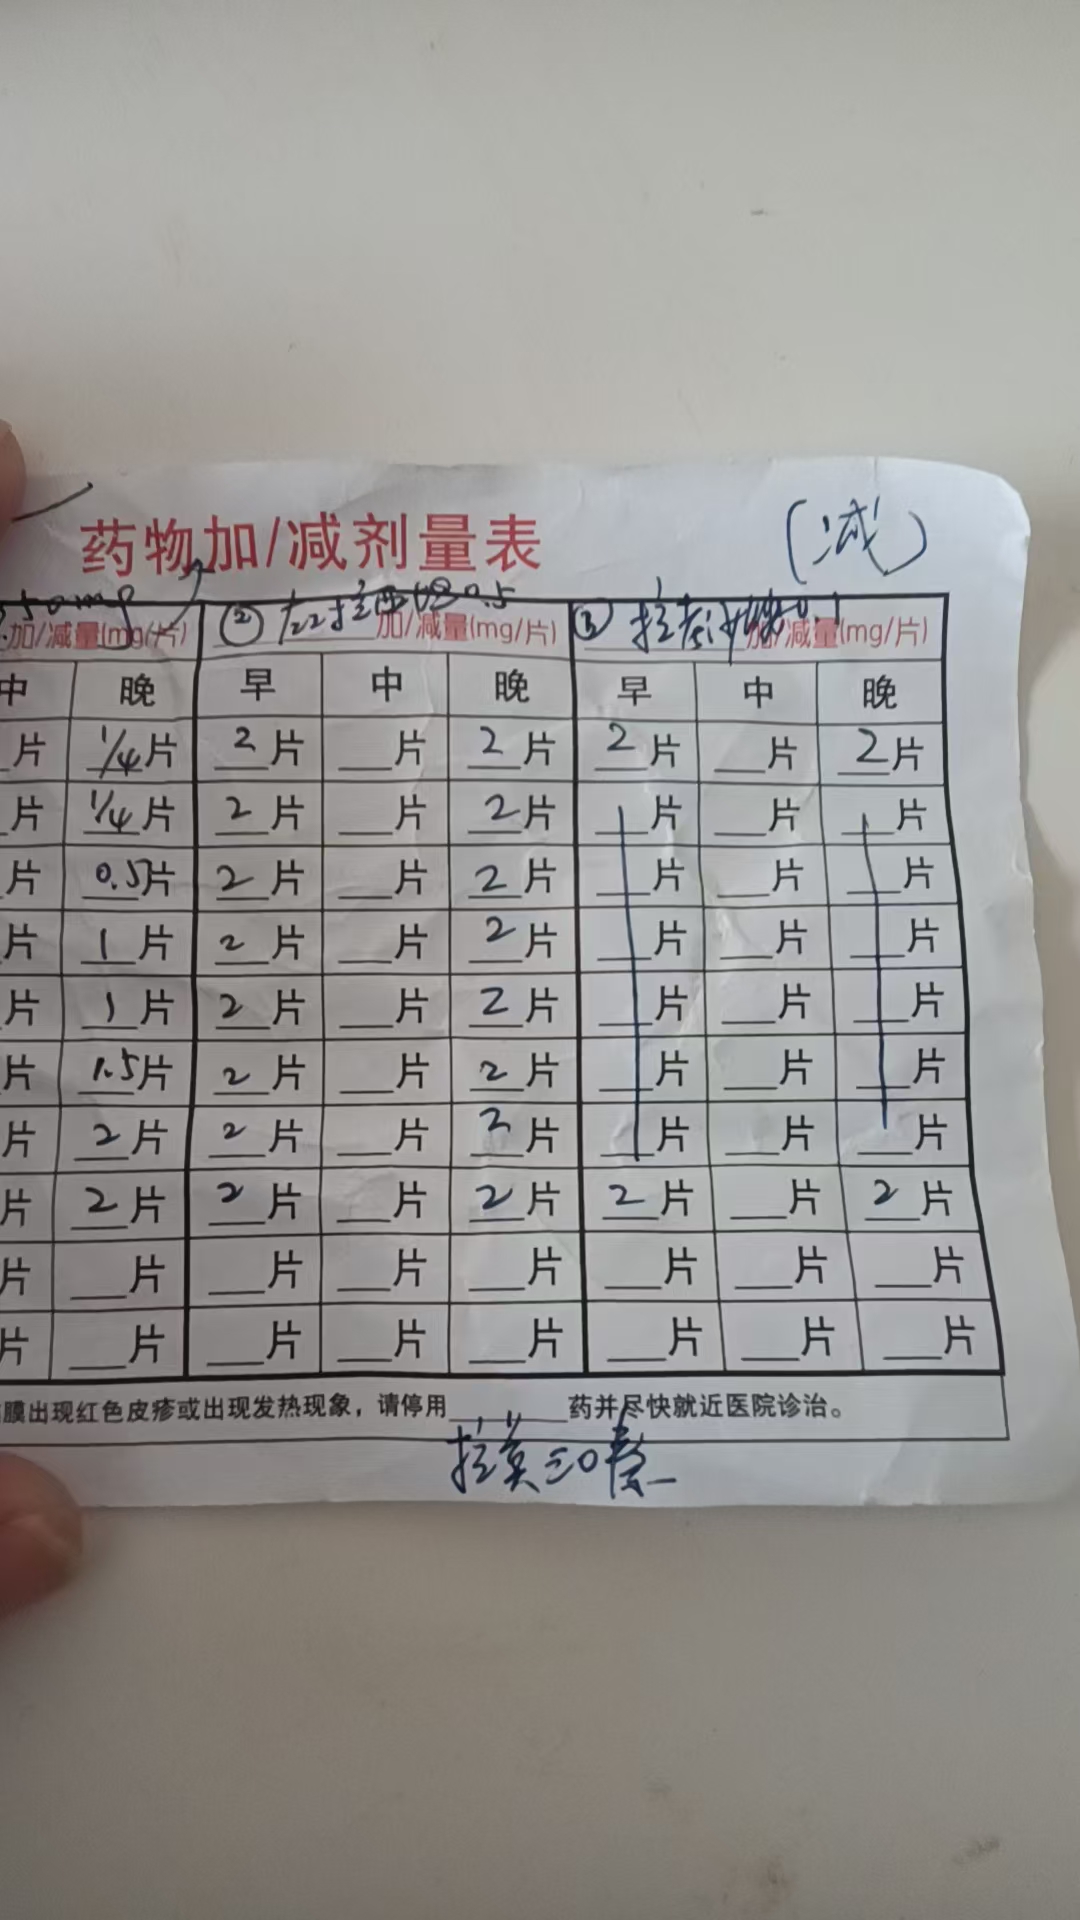 药物加/减剂量表
(减)
50mg 加/减量(mg/片) ② 左乙拉西坦0.5 加/减量(mg/片) ③ 拉考沙胺0.1 加/减量(mg/片)
中 晚 早 中 晚 早 中 晚
片 1/4片 2片 片 2片 2片 片 2片
片 1/4片 2片 片 2片 片 片 片
片 0.5片 2片 片 2片 片 片 片
片 1片 2片 片 2片 片 片 片
片 1片 2片 片 2片 片 片 片
片 1.5片 2片 片 2片 片 片 片
片 2片 2片 片 2片 片 片 片
片 2片 2片 片 2片 2片 片 2片
片 片 片 片 片 片 片 片
片 片 片 片 片 片 片 片
膜出现红色皮疹或出现发热现象，请停用 药并尽快就近医院诊治。
拉莫三嗪